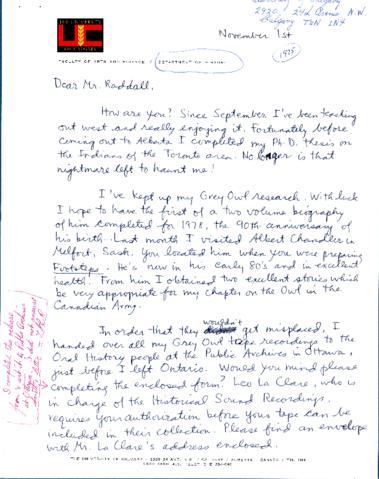 University of Calgary
2920, 24th Avenue N.W.
Calgary T2N 1N4
November 1st
(1975)
THE UNIVERSITY
FACULTY OF ARTS AND SCIENCE / DEPARTMENT OF HISTORY
Dear Mr. Raddall,
How are you? Since September I've been teaching
out west and really enjoying it. Fortunately before
coming out to Alberta I completed my Ph D. thesis on
the Indians of the Toronto area. No longer is that
nightmare left to haunt me!
I've kept up my Grey Owl research. With luck
I hope to have the first of a two volume biography
of him completed for 1978, the 90th anniversary of
his birth. Last month I visited Albert Chandler in
Melfort, Sask. You located him when you were preparing
Footsteps. He's now in his early 80's and in excellent
health! From him I obtained two excellent stories which
be very appropriate for my chapter on the Owl in the
Canadian Army.
In order that they wouldn't get misplaced, I
handed over all my Grey Owl tape recordings to the
Oral History people at the Public Archives in Ottawa,
just before I left Ontario. Would you mind please
completing the enclosed form? Leo La Clare, who is
in charge of the Historical Sound Recordings,
requires your authorization before your tape can be
included in their collection. Please find an envelope
with Mr. La Clare's address enclosed.
THE UNIVERSITY OF CALGARY